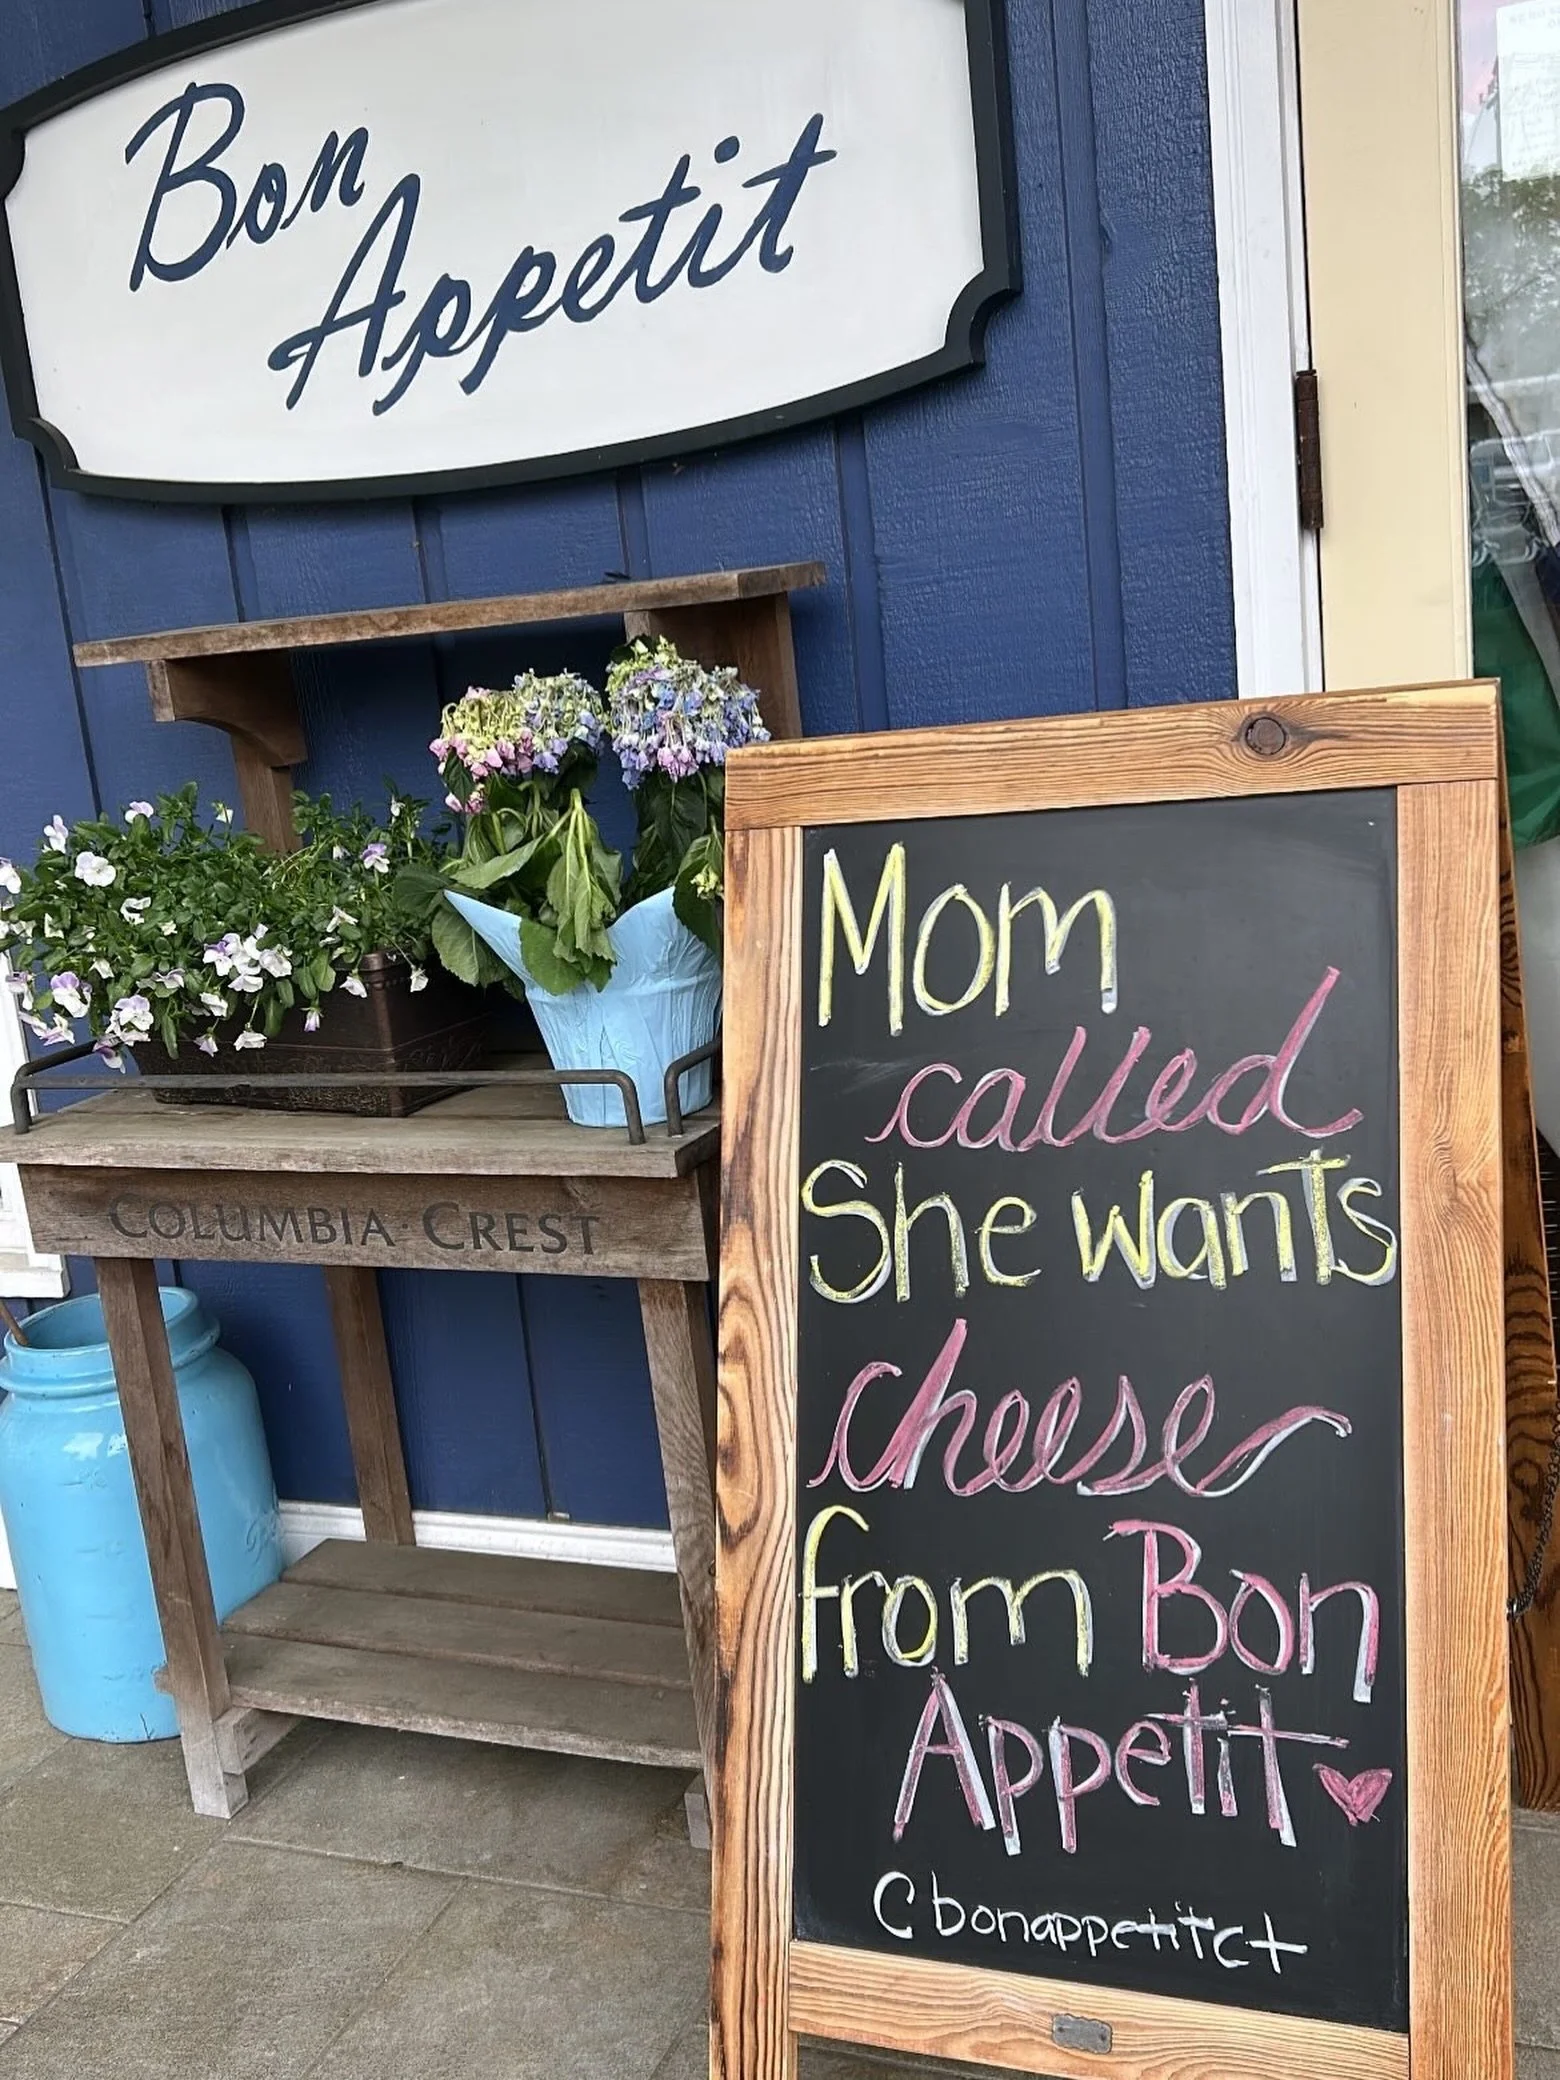 Bon
Appetit
COLUMBIA · CREST
Mom
called
She wants
cheese
from Bon
Appetit
C bonappetitct